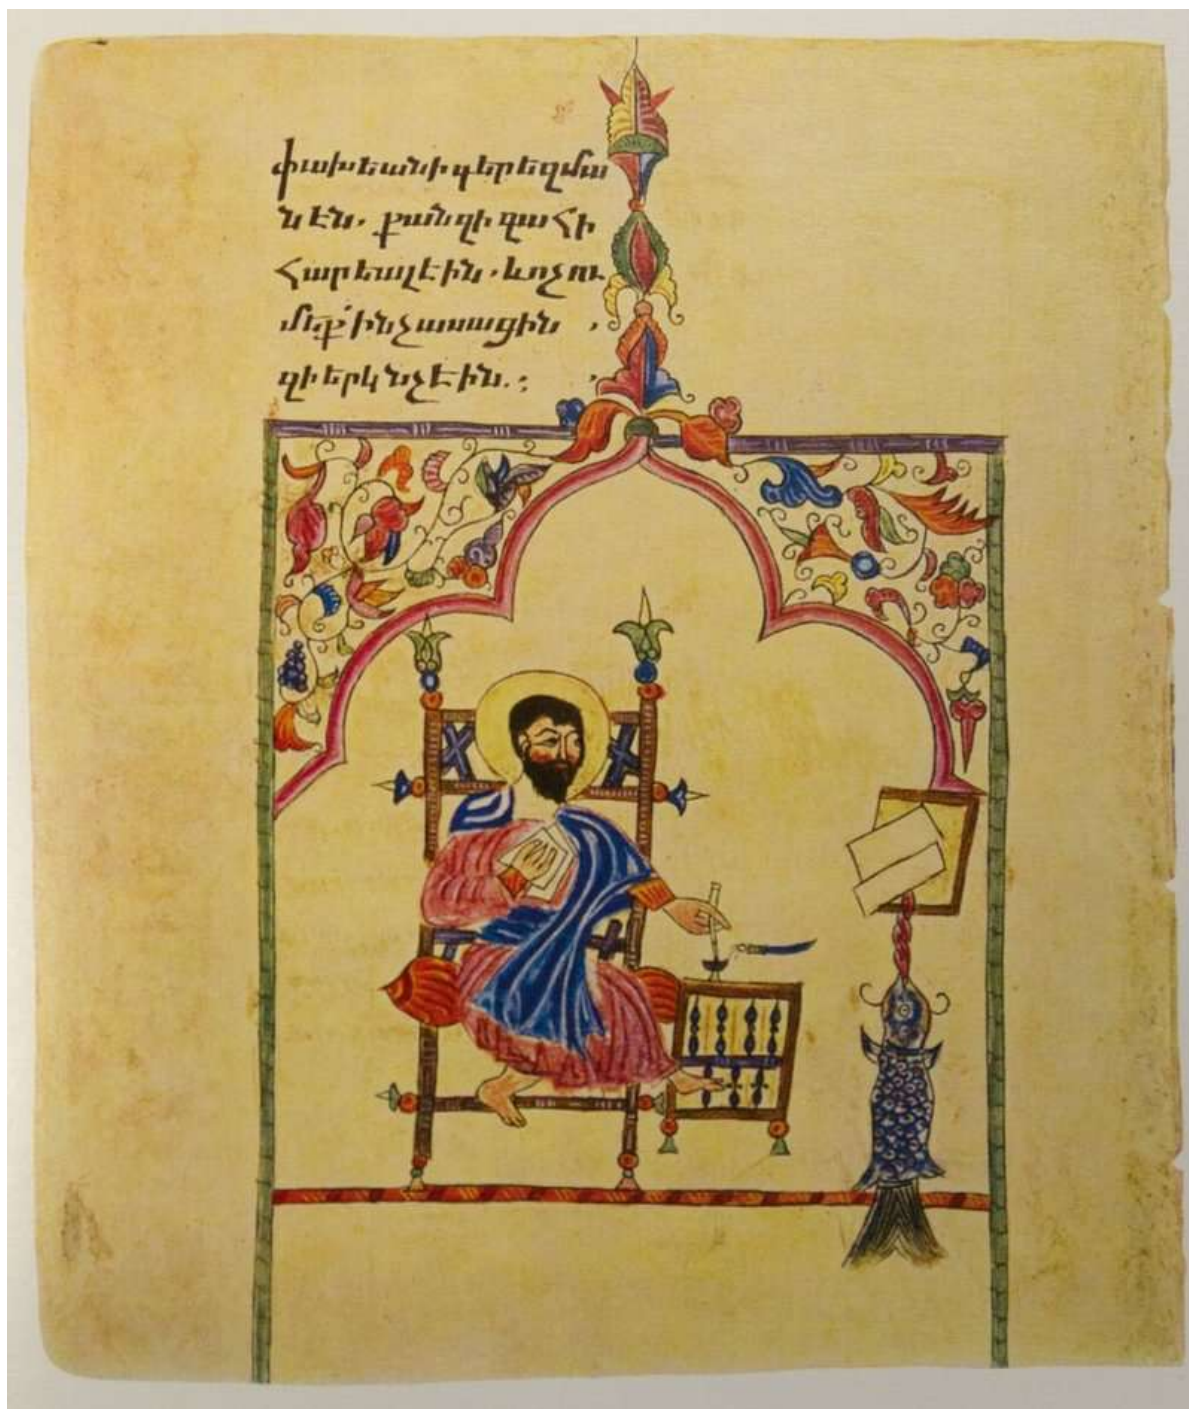 փախեան ի գերեզմա
նէն. քանզի զահի
հարեալ էին. և ոչ ու
մեք՛ ինչ ասացին
զի երկնչէին.: